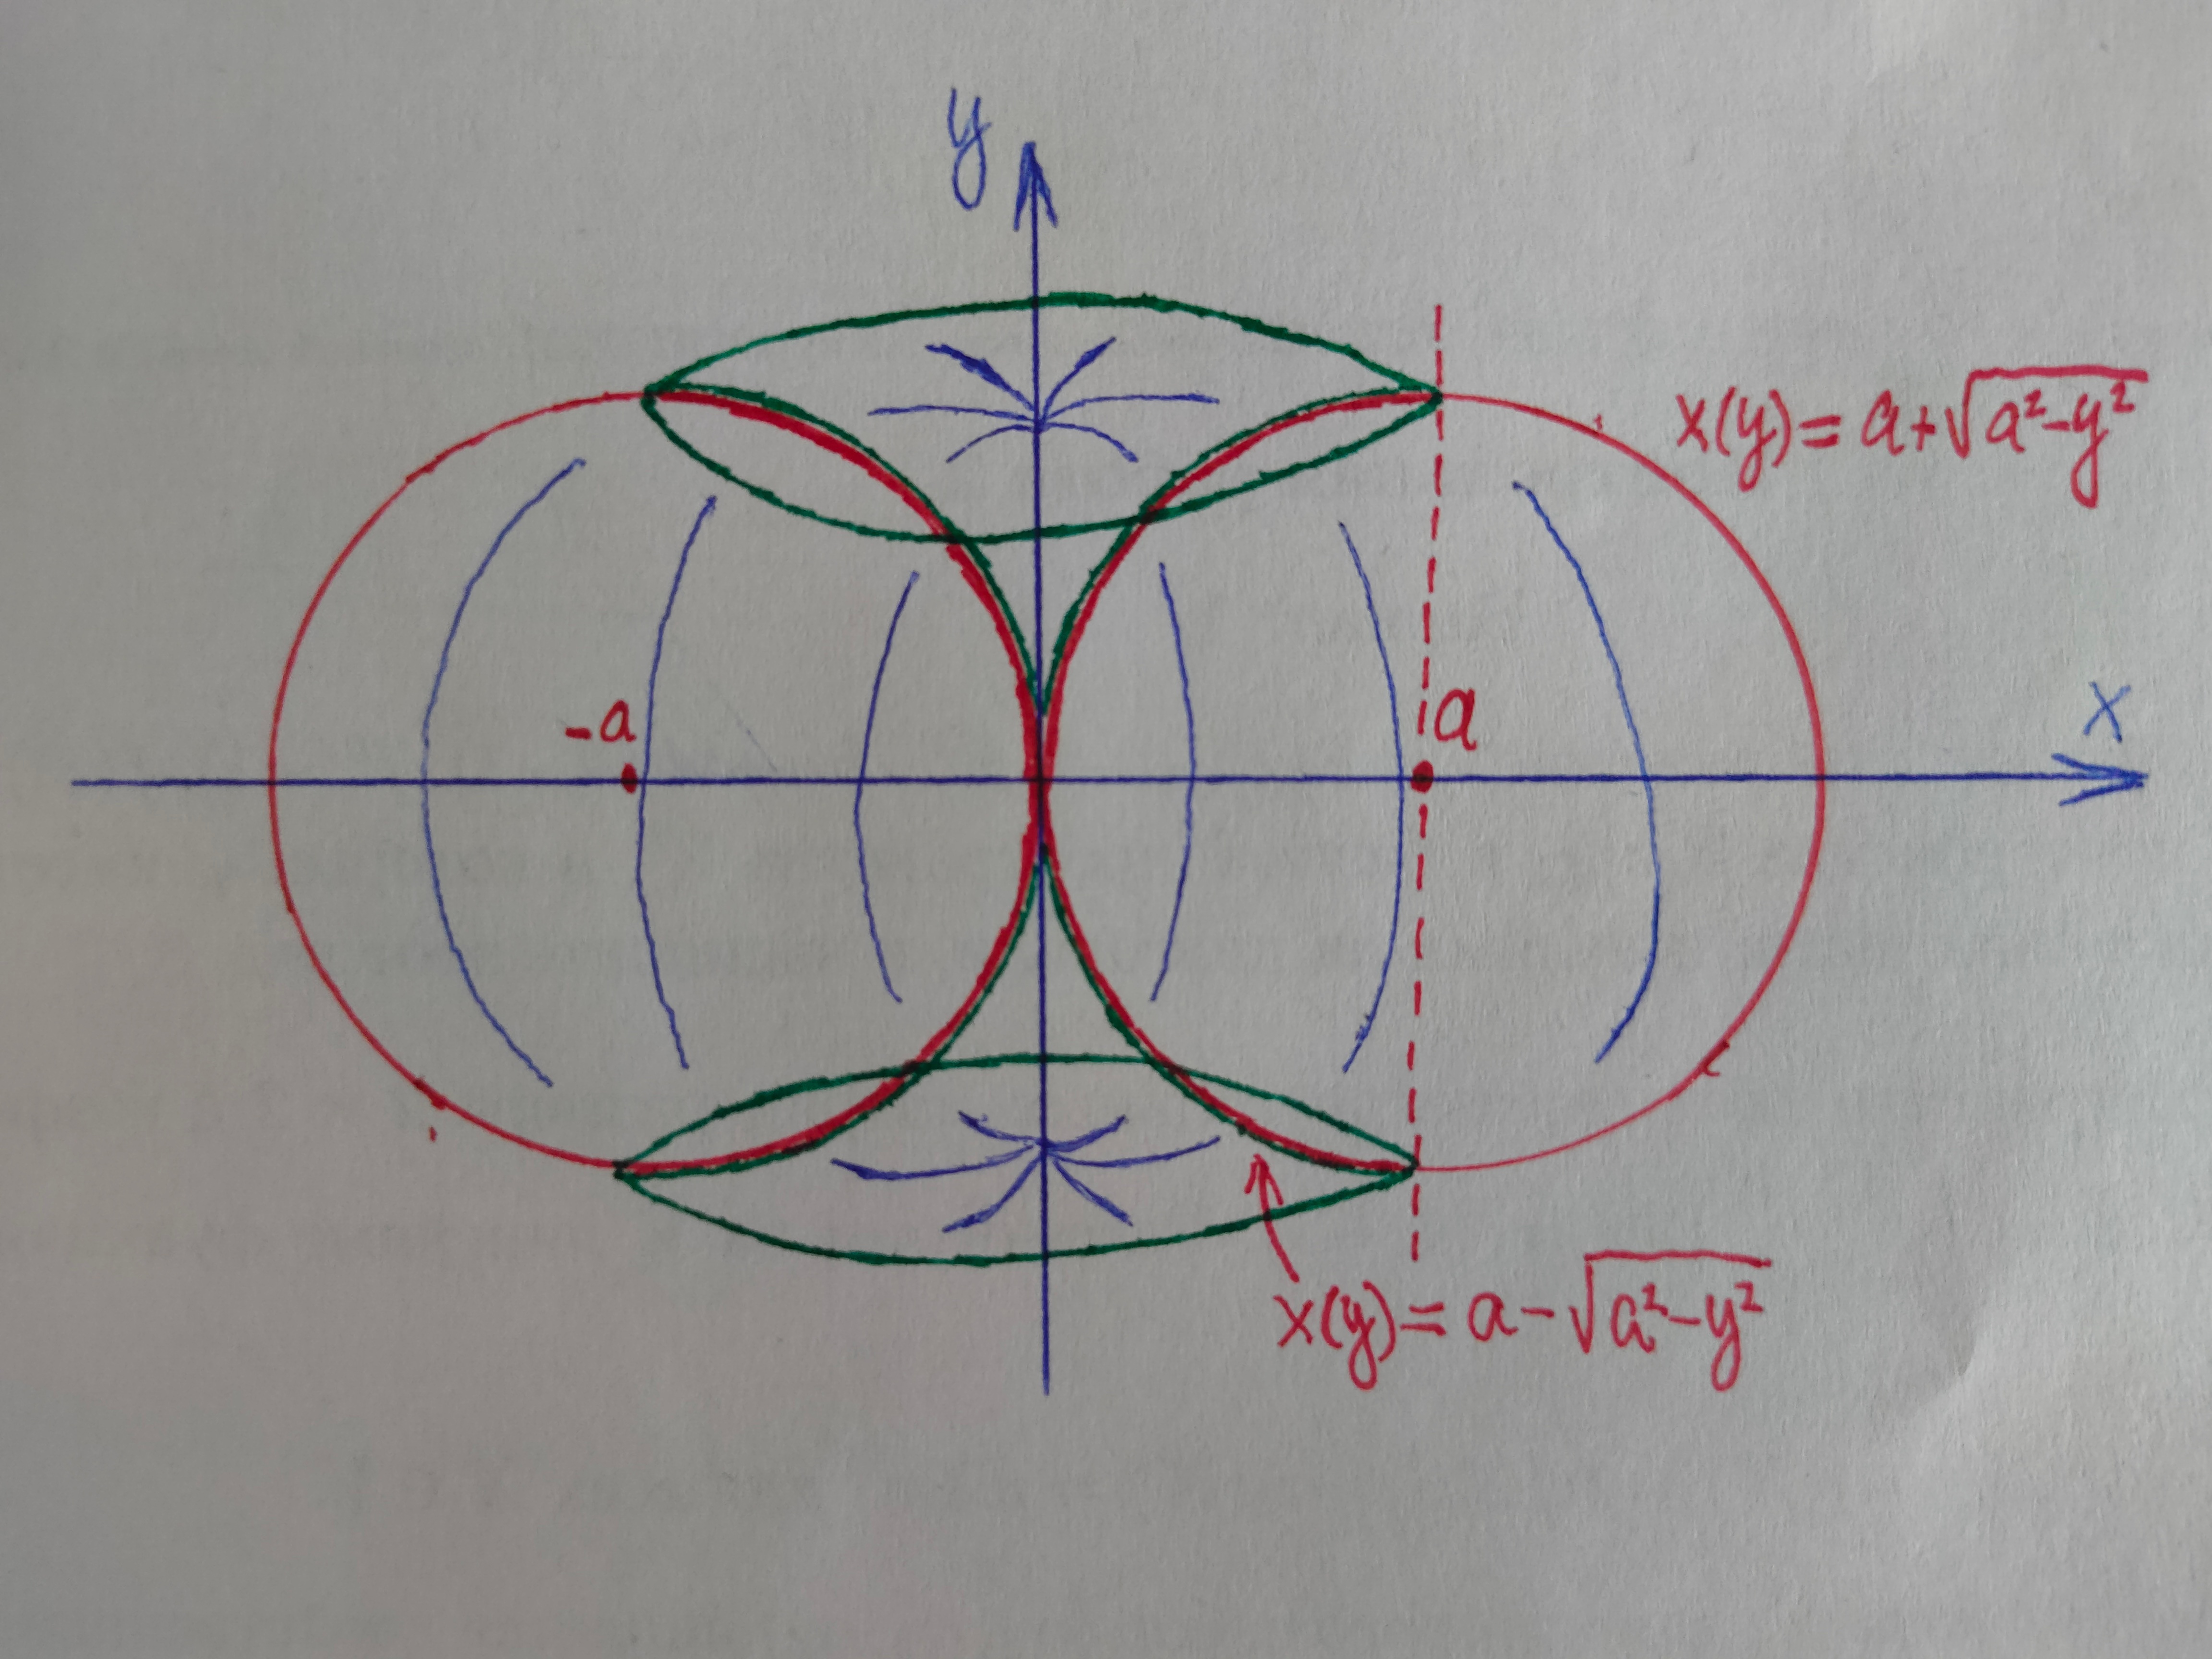 y
x(y) = a + √a² - y²
-a
a
x
x(y) = a - √a² - y²